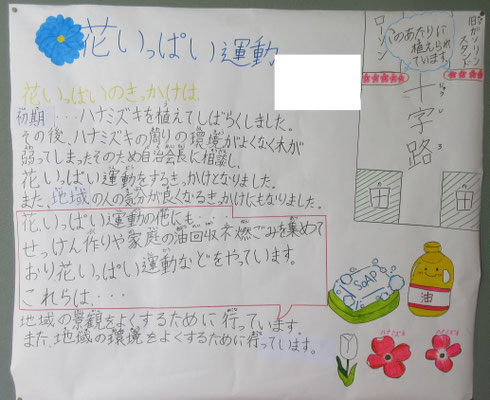 花いっぱい運動
花いっぱいのきっかけは
初期・・・ハナミズキを植えてしばらくしました。
その後、ハナミズキの周りの環境がよくなく木が
弱ってしまったそのため自治会長に相談し、
花いっぱい運動をするきっかけとなりました。
また、地域の人の気分が良くなるきっかけにもなりました。
花いっぱい運動の他にも・・・・
せっけん作りや家庭の油回収不燃ごみを集めて
おり花いっぱい運動などをやっています。
これらは・・・・
地域の景観をよくするために行っています。
また、地域の環境をよくするために行っています。
ローソン
このあたりに
植えられ
ています。
旧ガソリン
スタンド
十字路
田
田
SOAP
油
ハナミズキ
ハナミズキ